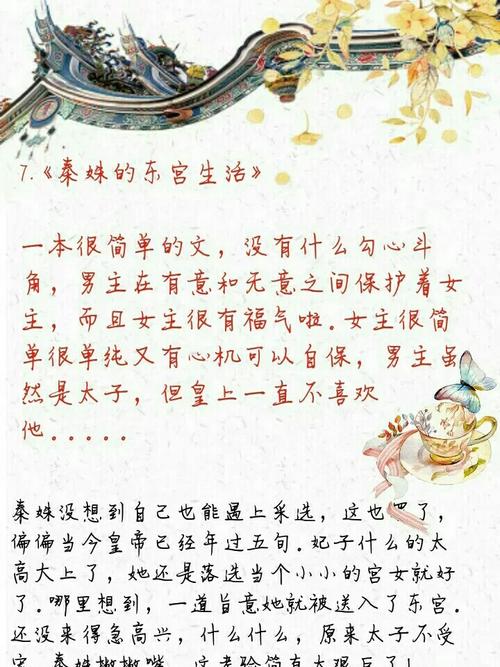 7.《秦姝的东宫生活》
一本很简单的文，没有什么勾心斗
角，男主在有意和无意之间保护着女
主，而且女主很有福气啦.女主很简
单很单纯又有心机可以自保，男主虽
然是太子，但皇上一直不喜欢
他.....
秦姝没想到自己也能遇上采选，这也罢了，
偏偏当今皇帝已经年过五旬.妃子什么的太
高大上了，她还是落选当个小小的宫女就好
了.哪里想到，一道旨意她就被送入了东宫.
还没来得急高兴，什么什么，原来太子不受
宫，秦姝撇撇嘴，这考验简直太艰巨了！